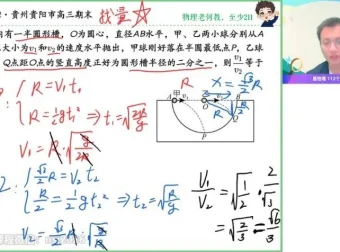 ：贵州贵阳市高三期末
物理老何教，至少211
有一半圆形槽，O为圆心，直径AB水平，甲、乙两小球分别从A
大小为v₁和v₂的速度水平抛出，甲球刚好落在半圆最低点P，乙球
Q点距O点的竖直高度正好为圆形槽半径的二分之一，则 v₁/v₂ 等于
R = V₁t₁
R = ½gt₁² ⇒ t₁ = √(2R/g)
X = √3/2 R
V₁ = R·√(g/2R)
√3/2 R = V₂t₂
R/2 = ½gt₂² ⇒ t₂ = √(R/g)
V₁/V₂ = √(1/2)·2/√3
= √(2/3) = √6/3